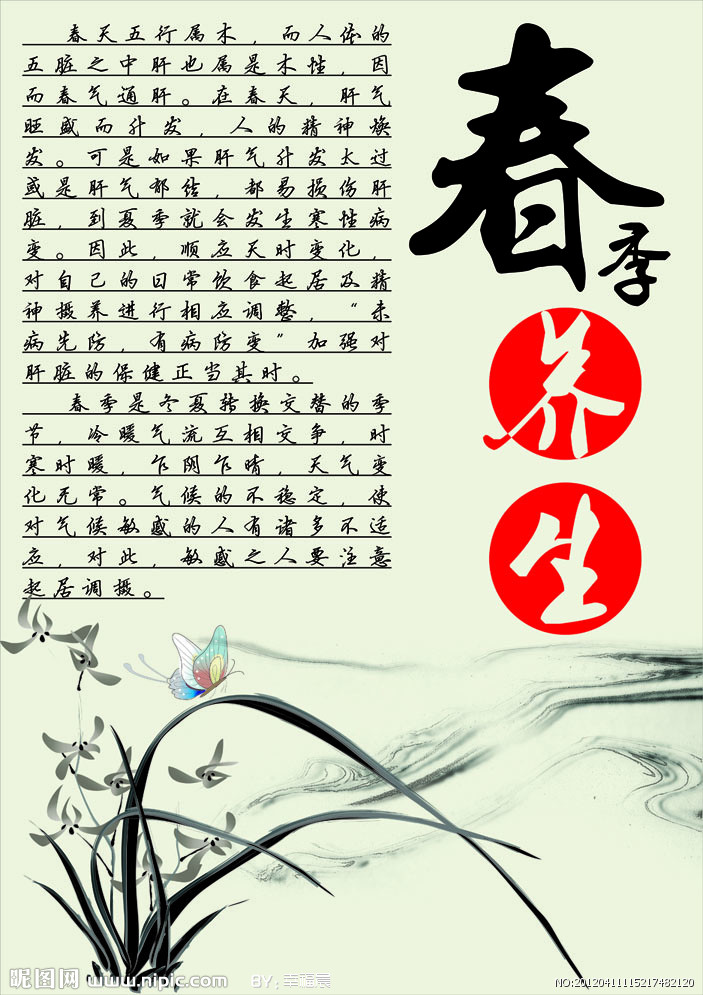 春天五行属木，而人体的
五脏之中肝也属是木性，因
而春气通肝。在春天，肝气
旺盛而升发，人的精神焕
发。可是如果肝气升发太过
或是肝气郁结，都易损伤肝
脏，到夏季就会发生寒性病
变。因此，顺应天时变化，
对自己的日常饮食起居及精
神摄养进行相应调整，“未
病先防，有病防变”加强对
肝脏的保健正当其时。
春季是冬夏转换交替的季
节，冷暖气流互相交争，时
寒时暖，乍阴乍晴，天气变
化无常。气候的不稳定，使
对气候敏感的人有诸多不适
应，对此，敏感之人要注意
起居调摄。
春
季
养
生
昵图网 www.nipic.com BY:幸福晨
NO:20120411115217482120